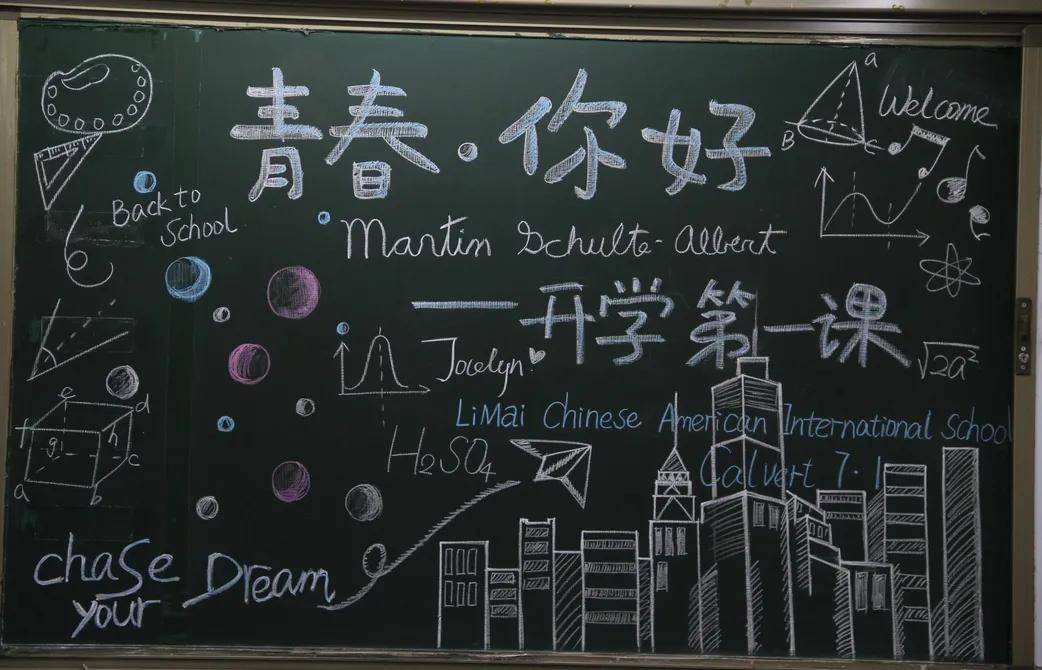 青春·你好
a
B
C
Welcome
Back to
School
Martin Schulte-Albert
——开学第一课
Jocelyn
√2a²
LiMai Chinese American International School
H₂SO₄
Calvert 7.1
e
d
g
h
c
a
b
chase
your Dream